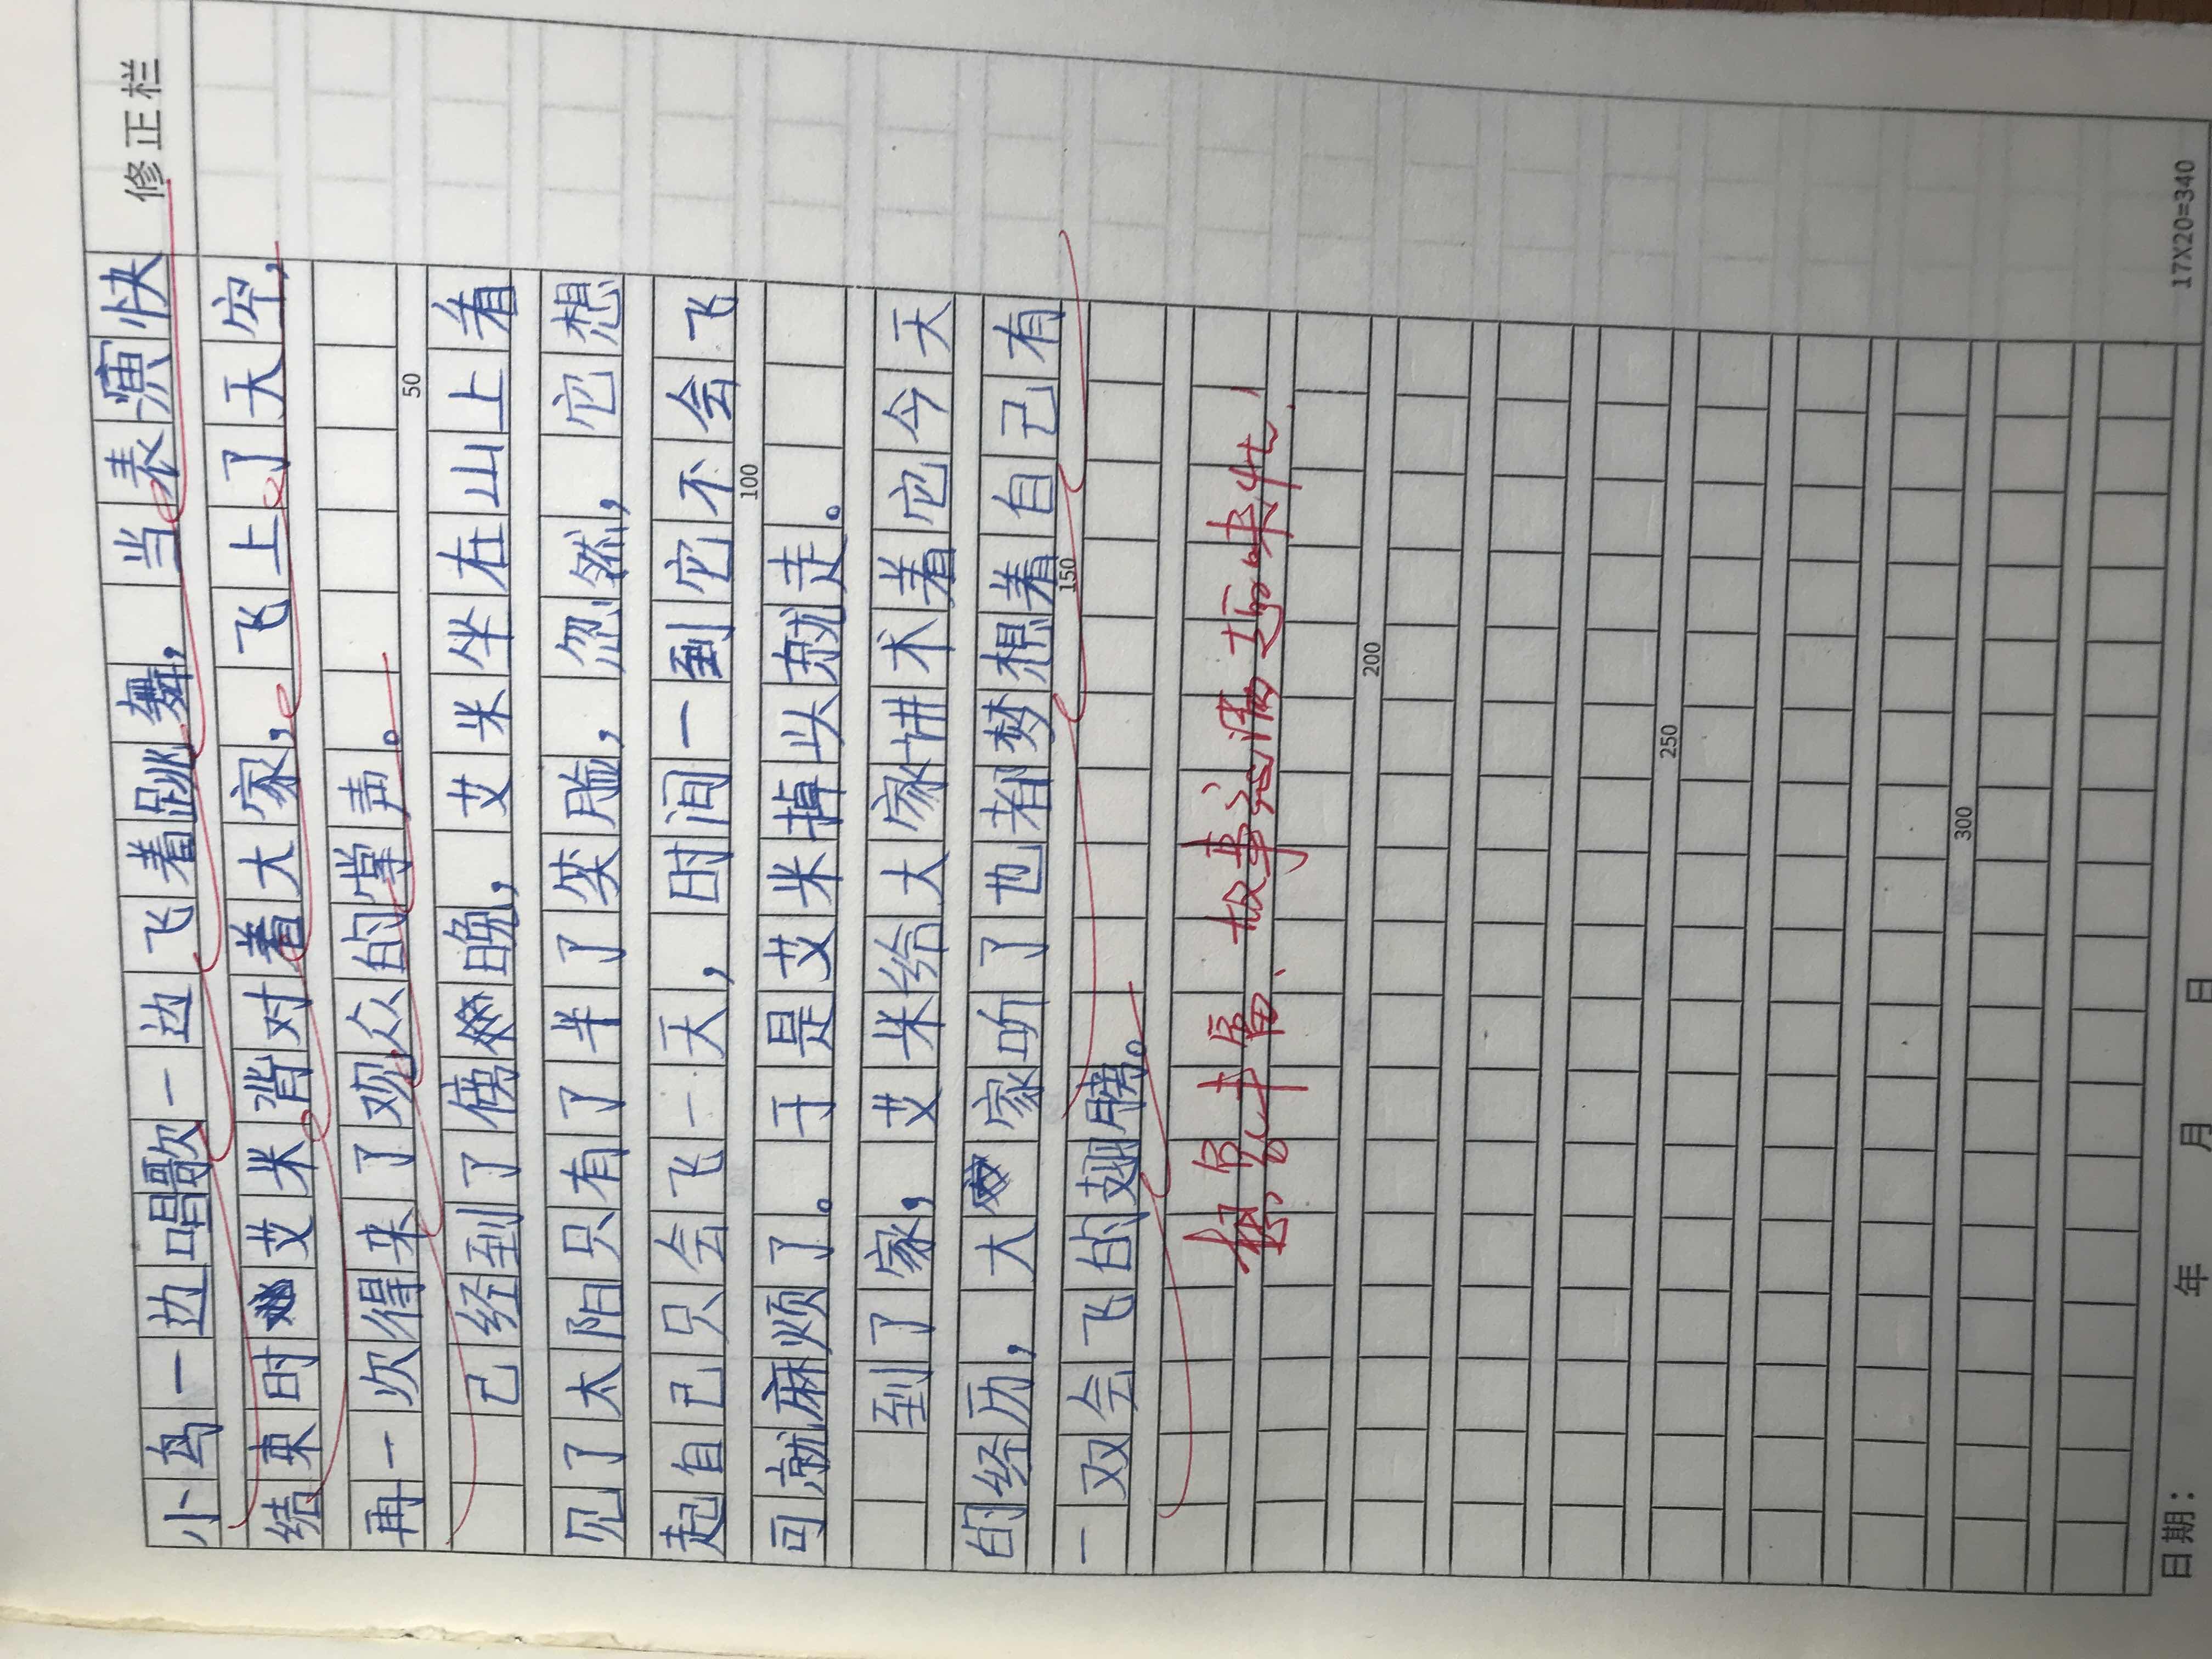 修正栏
小鸟一边唱歌一边飞着跳舞，当表演快
结束时艾米背对着大家，飞上了天空，
再一次得来了观众的掌声。
50
已经到了傍晚，艾米坐在山上看
见了太阳只有了半了笑脸，忽然，它想
起自己只会飞一天，时间一到它不会飞
100
可就麻烦了。于是艾米掉头就走。
到了家，艾米给大家讲术着它今天
的经历，大家听了也都梦想着自己有
150
一双会飞的翅膀。
想象丰富、故事充满趣味性！
200
250
300
日期： 年 月 日 17X20=340